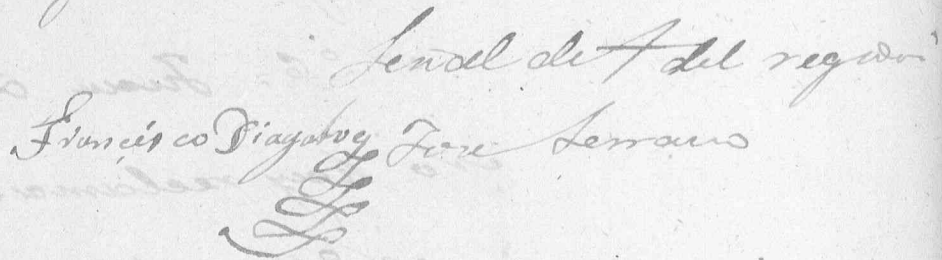 Señal de + del regidor
Francisco Diag José Serrano